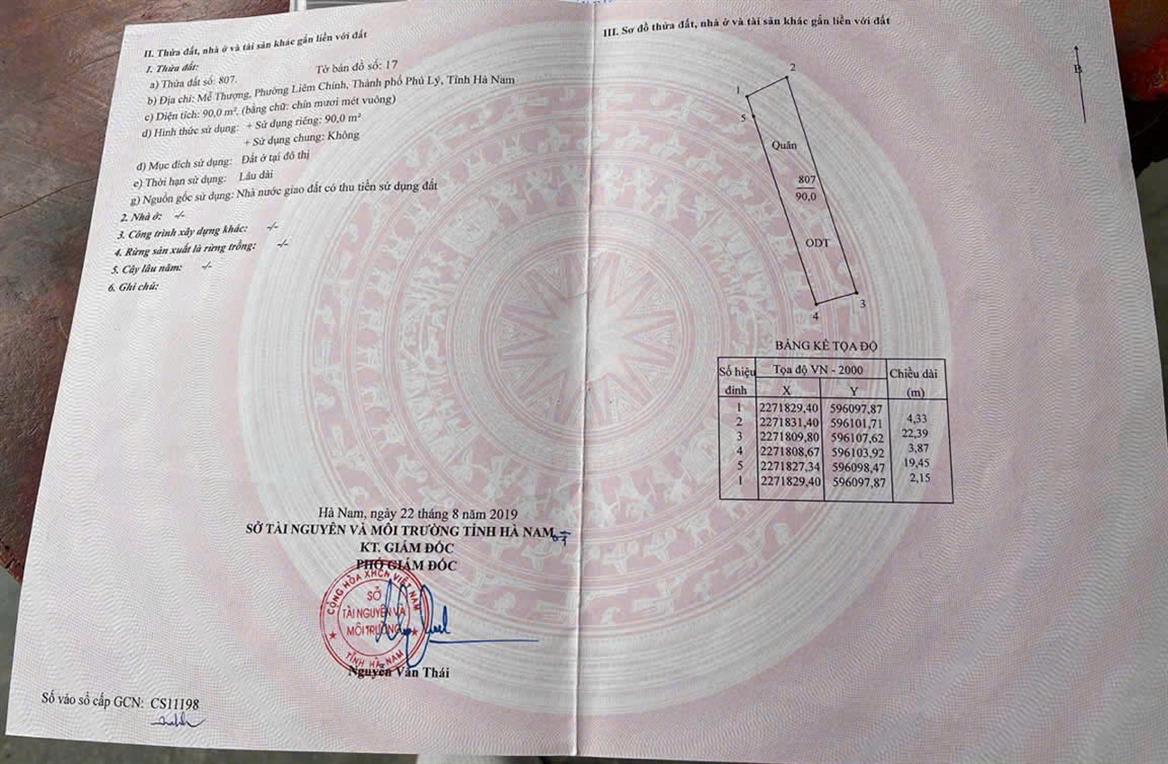 II. Thửa đất, nhà ở và tài sản khác gắn liền với đất
1. Thửa đất:
a) Thửa đất số: 807. Tờ bản đồ số: 17
b) Địa chỉ: Mễ Thượng, Phường Liêm Chính, Thành phố Phủ Lý, Tỉnh Hà Nam
c) Diện tích: 90,0 m², (bằng chữ: chín mươi mét vuông)
d) Hình thức sử dụng: + Sử dụng riêng: 90,0 m²
+ Sử dụng chung: Không
đ) Mục đích sử dụng: Đất ở tại đô thị
e) Thời hạn sử dụng: Lâu dài
g) Nguồn gốc sử dụng: Nhà nước giao đất có thu tiền sử dụng đất
2. Nhà ở: -/-
3. Công trình xây dựng khác: -/-
4. Rừng sản xuất là rừng trồng: -/-
5. Cây lâu năm: -/-
6. Ghi chú:
Hà Nam, ngày 22 tháng 8 năm 2019
SỞ TÀI NGUYÊN VÀ MÔI TRƯỜNG TỈNH HÀ NAM
KT. GIÁM ĐỐC
PHÓ GIÁM ĐỐC
CỘNG HÒA XHCN VIỆT NAM
SỞ
TÀI NGUYÊN VÀ
MÔI TRƯỜNG
TỈNH HÀ NAM
Nguyễn Văn Thái
Số vào sổ cấp GCN: CS11198
III. Sơ đồ thửa đất, nhà ở và tài sản khác gắn liền với đất
B
2
1
5
Quân
807
90,0
ODT
3
4
BẢNG KÊ TỌA ĐỘ
Số hiệu đỉnh Tọa độ VN - 2000 Chiều dài
X Y (m)
1 2271829,40 596097,87
4,33
2 2271831,40 596101,71
22,39
3 2271809,80 596107,62
3,87
4 2271808,67 596103,92
19,45
5 2271827,34 596098,47
2,15
1 2271829,40 596097,87